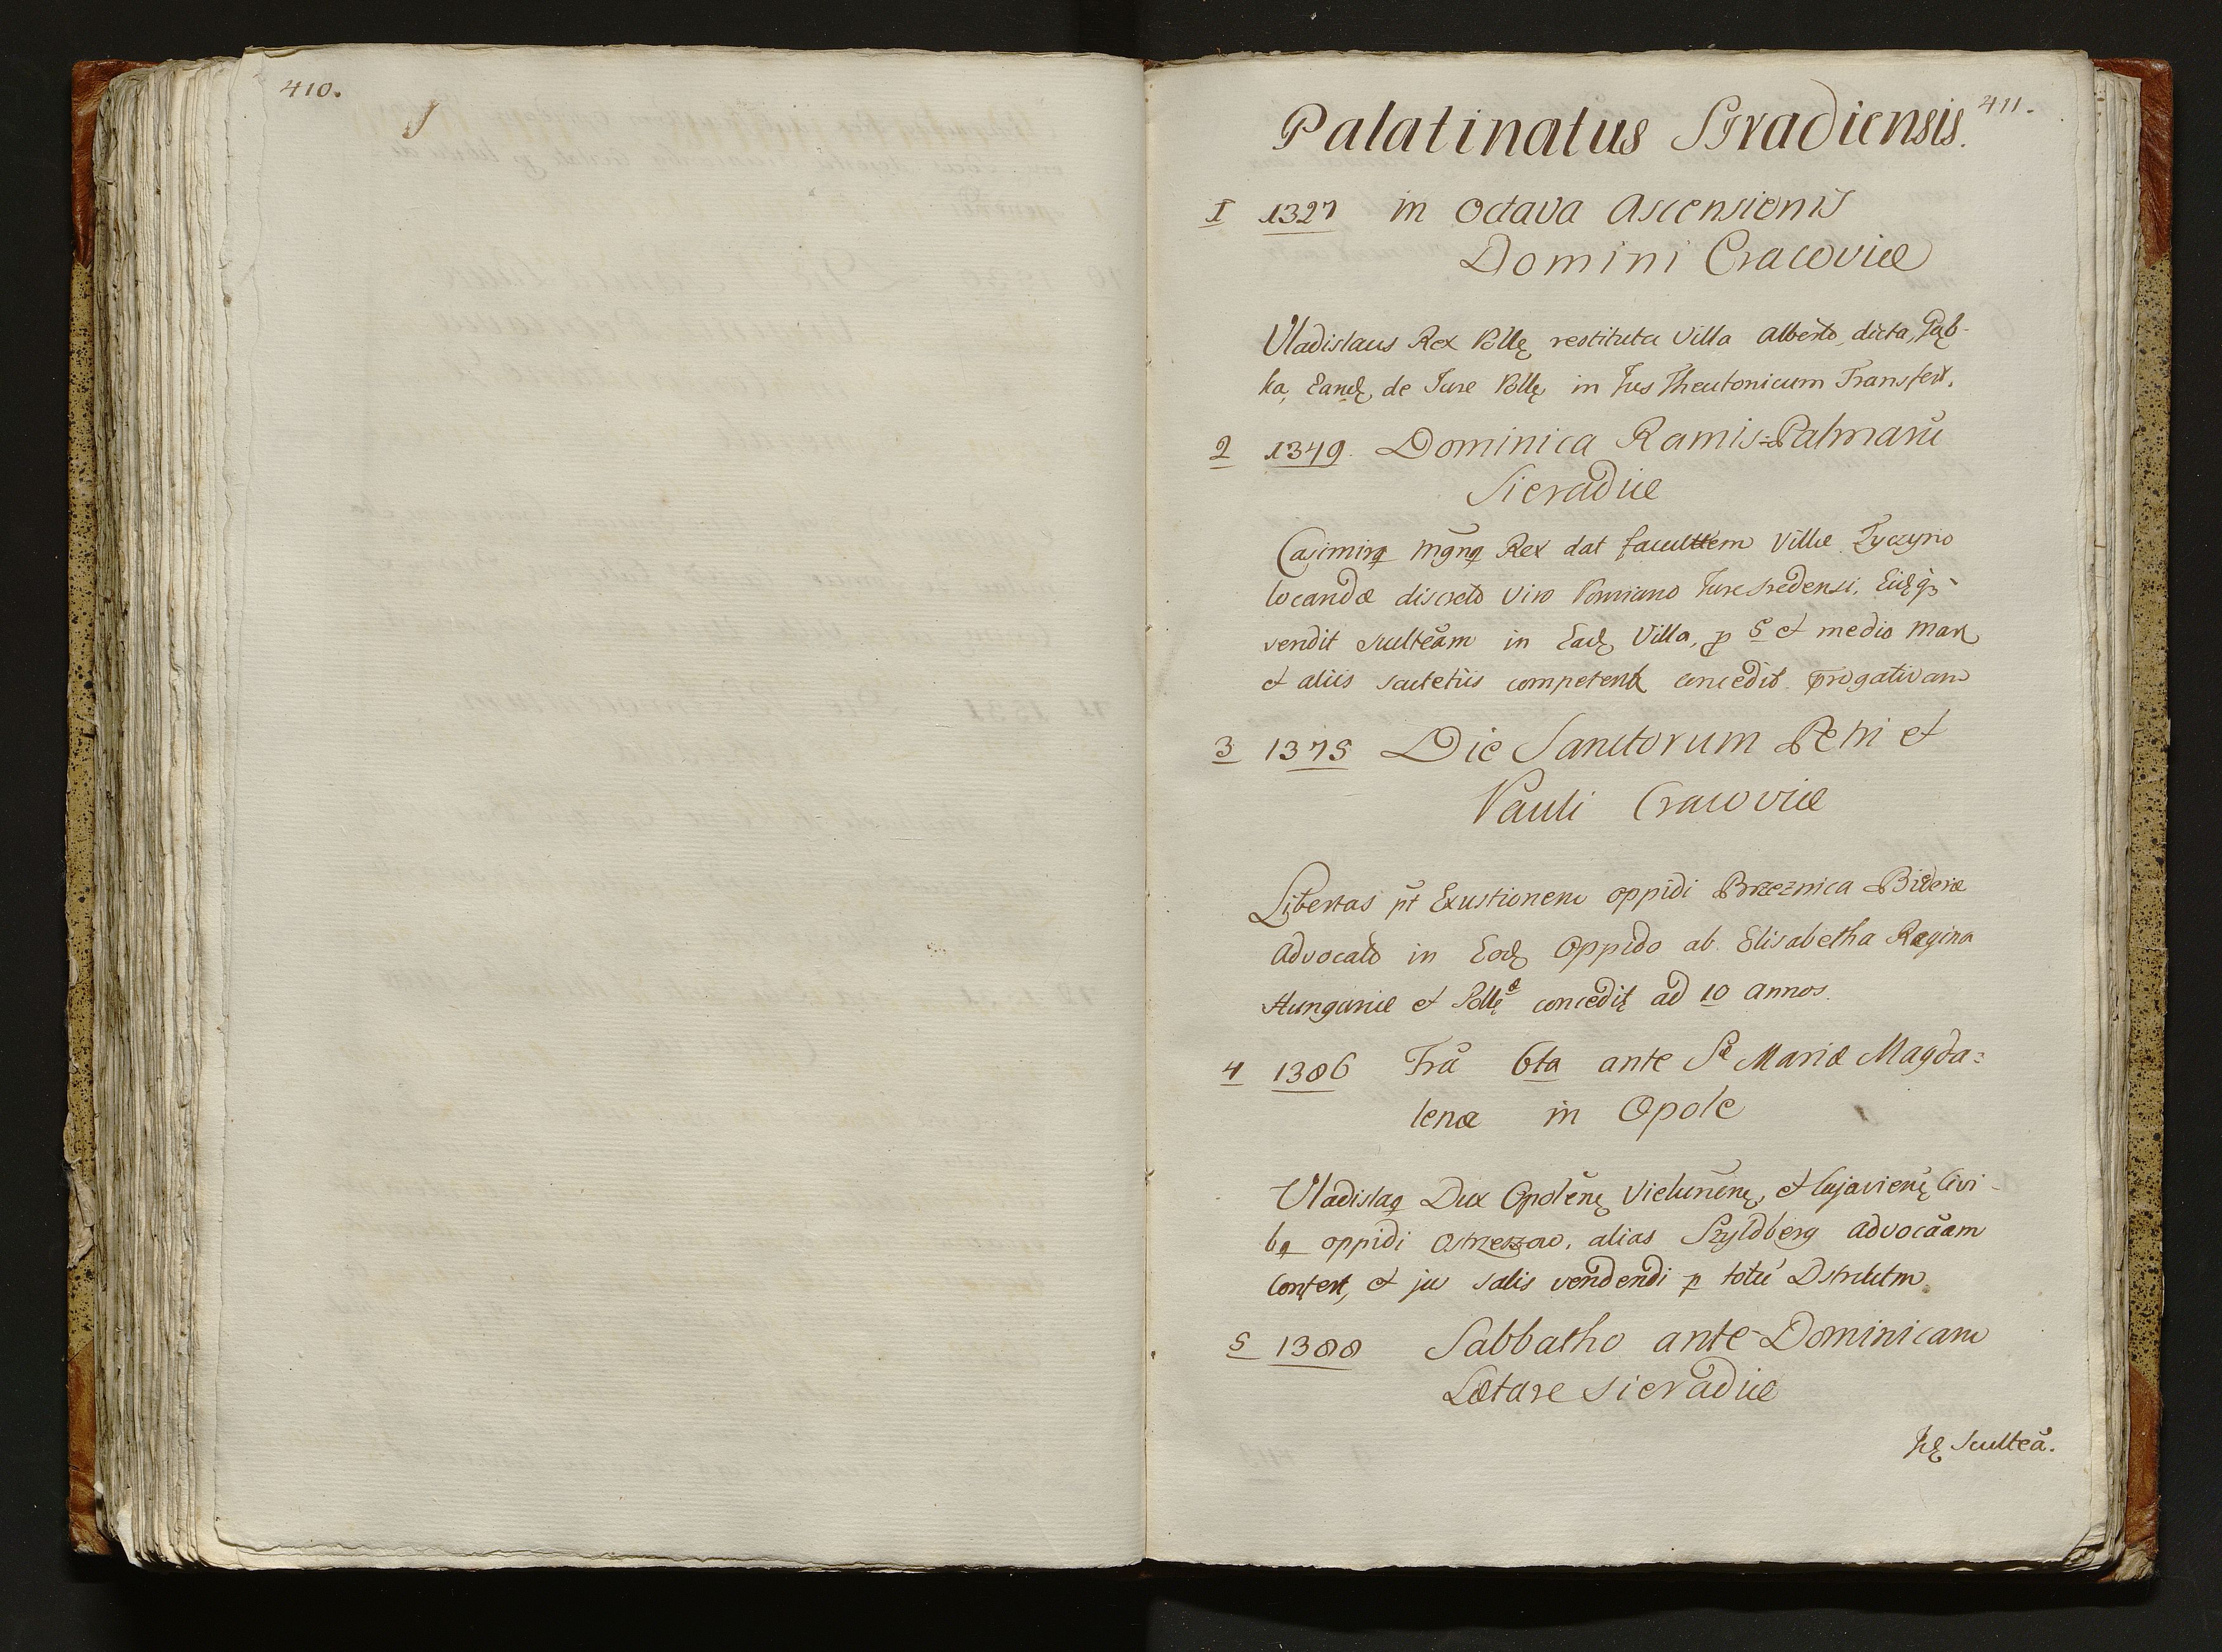 410.
411.
Palatinatus Syradiensis.
I 1327 in Octava Ascensionis
Domini Cracoviæ
Vladislaus Rex Pollę restituta Villa Alberto, dicta, Gąb-
ka, Eandę de Jure Pollę in Jus Theutonicum Transfert.
2 1349. Dominica Ramis-Palmarũ
Sieradiæ
Casimirꝯ Mgnꝯ Rex dat facultttem Villæ Tyczyno
locandæ discreto Viro Jure Sredensi,
vendit scultẽam in Eadę Villa, p 5 et medio Mar
et aliis scultetiis competent concedit progativam
3 1375 Die Sanctorum Petri et
Pauli Cracoviæ
Libertas pt Exustionem oppidi Brzeznica
Advocato in Eodę Oppido ab Elisabetha Regina
Hungariæ et Pollę concedit ad 10 annos.
4 1386 Fra 6ta ante S Mariæ Magda=
lenæ in Opole
Vladislaꝯ Dux Opolenę, Vielunenę, et Cujavienę Civi-
bꝯ oppidi Ostrzeszow, alias Szyldberg advocãam
Confert, et jus salis vendendi p totũ Dstrictm
5 1388 Sabbatho ante Dominicam
Lætare Sieradiæ
Scultẽa.